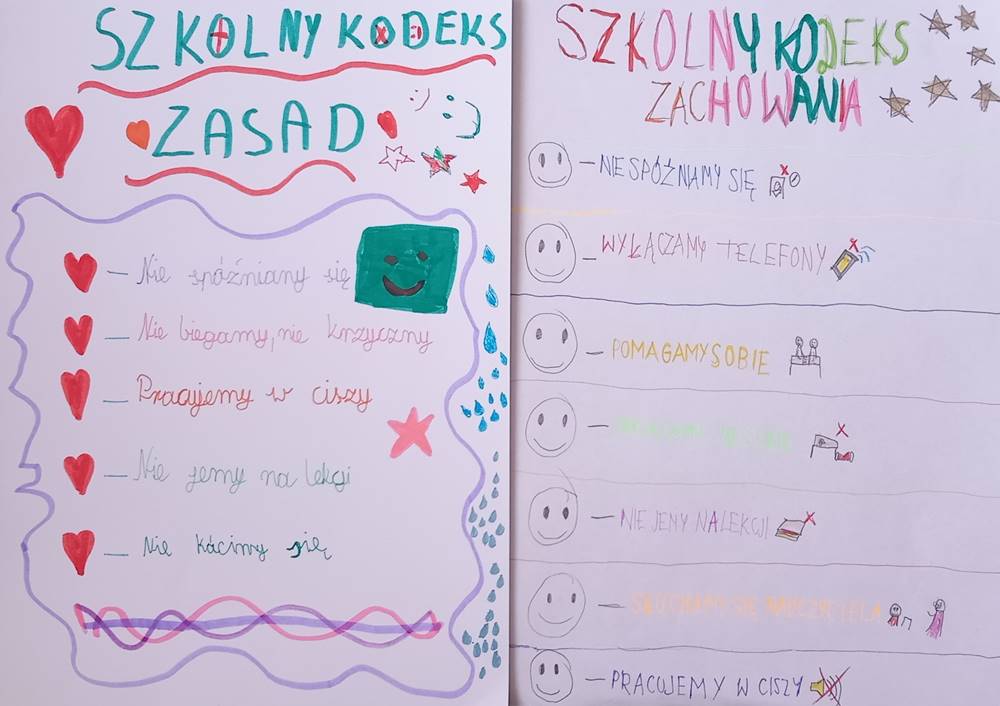 SZKOLNY KODEKS
ZASAD
Nie spóźniany się
Nie biegamy, nie krzyczny
Pracujemy w ciszy
Nie jemy na lekcji
Nie kłócimy się
SZKOLNY KODEKS
ZACHOWANIA
NIE SPÓŹNIAMY SIĘ
WYŁĄCZAMY TELEFONY
POMAGAMY SOBIE
PO SOBIE
NIE JEMY NA LEKCJI
SŁUCHAMY SIĘ NAUCZYCIELA
PRACUJEMY W CISZY